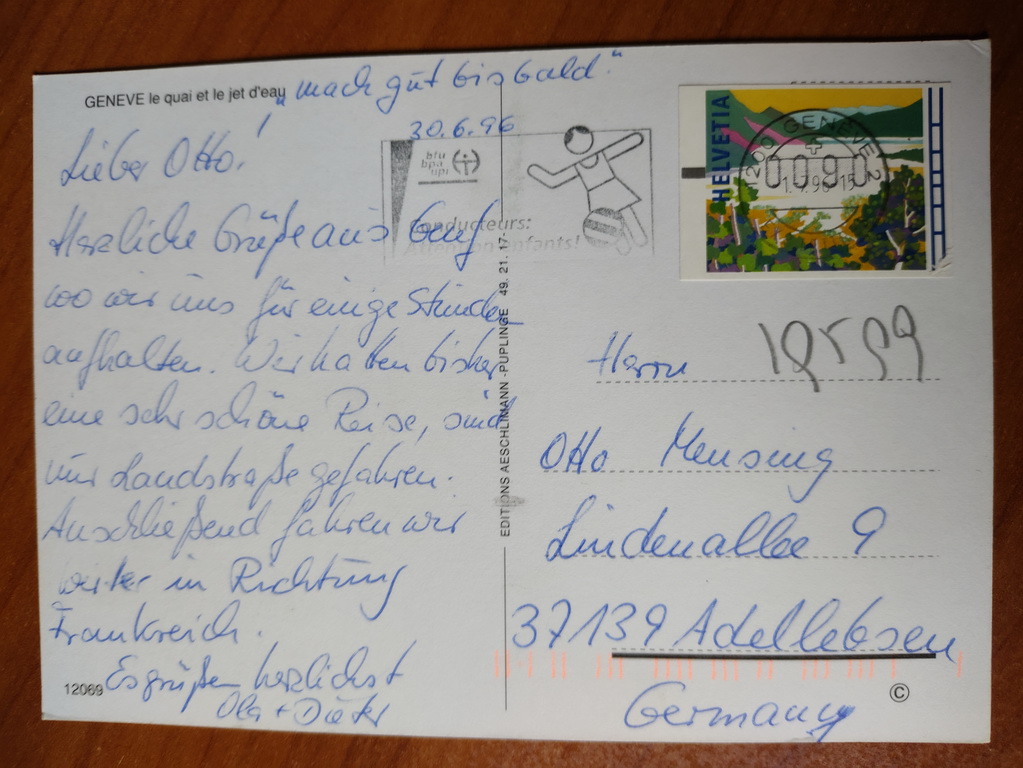 GENEVE le quai et le jet d'eau
"mach gut bis bald."
30.6.96
Lieber Otto!
Herzliche Grüße aus Genf
wo wir uns für einige Stunden
aufhalten. Wir hatten bisher
eine sehr schöne Reise, sind
nur Landstraße gefahren.
Anschließend fahren wir
weiter in Richtung
Frankreich.
Es grüßen herzlichst
+ Dieter
12069
EDITIONS AESCHLIMANN - PUPLINGE 49. 21. 17
bfu
bpa
upi
Conducteurs:
Attention enfants!
HELVETIA
1200 GENEVE 2
0090
1.7.96-15
Herrn
Otto Mensing
Lindenallee 9
37139 Adelebsen
Germany
©